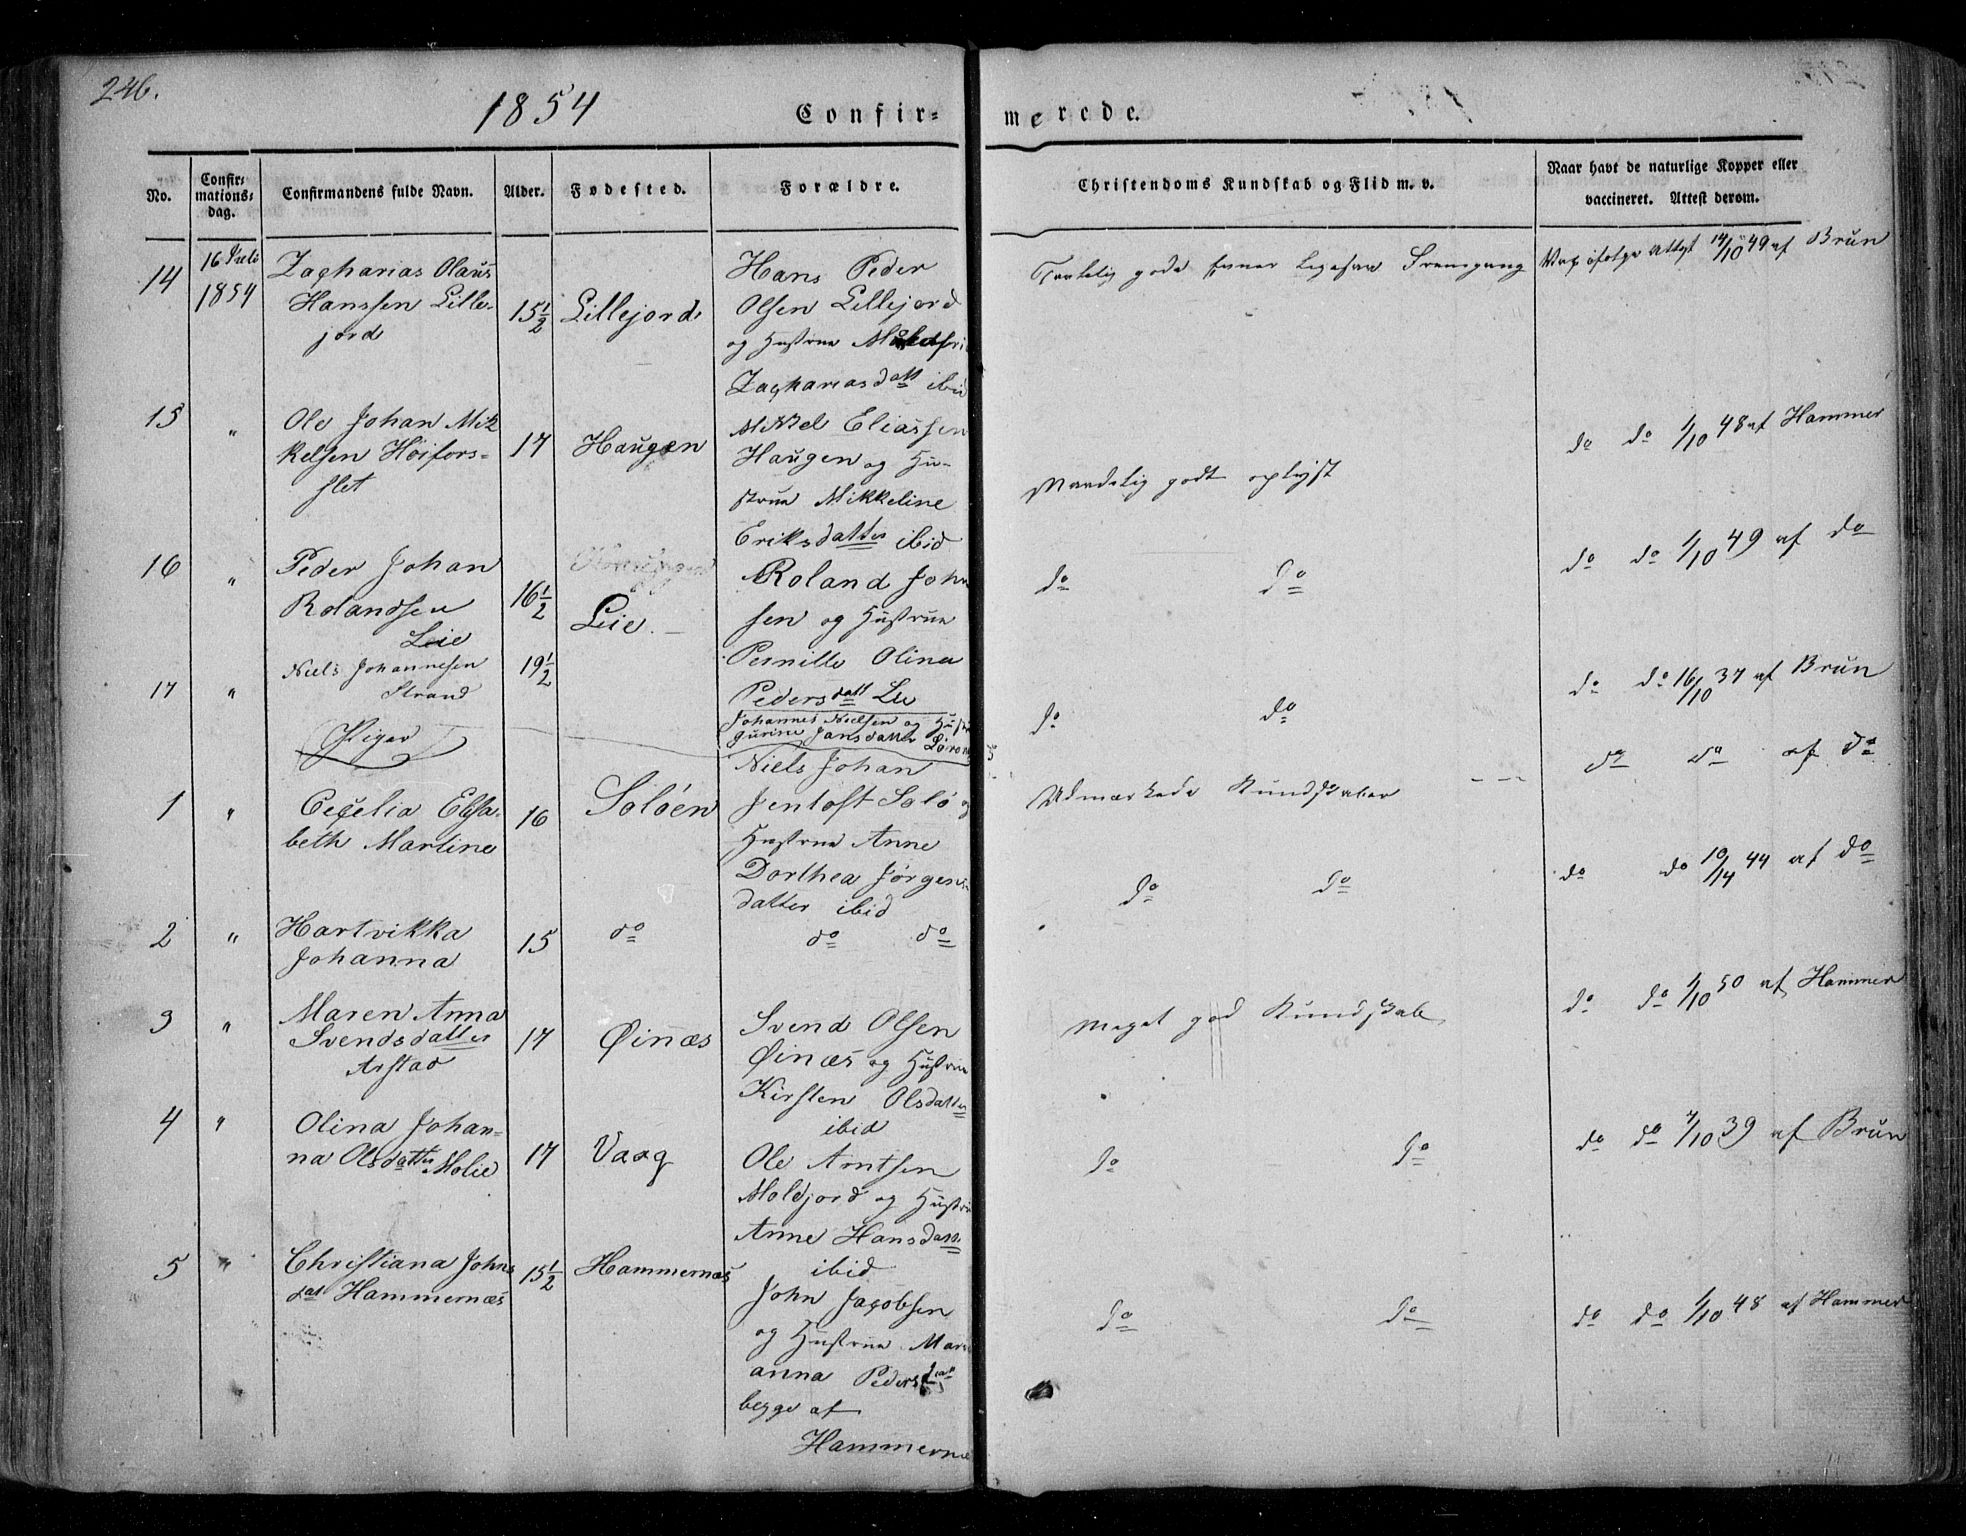 246.
1854
Confir=
merede.
No.
Confir=
mations=
dag.
Confirmandens fulde Navn.
Alder.
Fødested.
Forældre.
Christendoms Kundskab og Flid m. v.
Naar havt de naturlige Kopper eller
vaccineret. Attest derom.
14
16 Juli
1854
Zacharias Olaus
Hanssen Lille-
jord
15½
Lillejord
Hans Peder
Olsen Lillejord
og Hustrue
Zachariasdatt ibid
gode
Attest 14/10 49 af Brun
15
"
Ole Johan Mik
kelsen Høifors-
slet
17
Haugen
Mikkel Eliassen
Haugen og Hu-
strue Mikkeline
Eriksdatter ibid
Maadelig godt oplyst
do do 1/10 48 af Hammer
16
"
Peder Johan
Rolandsen
Leie
16½
Leie.
Roland John
sen og Hustrue
Pernille Olina
Pedersdatt Lie
do do
do do 1/10 49 af do
17
"
Niels Johannesen
Strand
19½
Johannes Nielsen og
Gurine Jansdatter
do do
do do 16/10 37 af Brun
Piger
1
"
Cecelia Elisa-
beth Martine
16
Soløen
Niels Johan
Jentoft Solø og
Hustrue Anne
Dorthea Jørgens
datter ibid
Udmærkede Kundskaber
do do af do
2
"
Hartvikka
Johanna
15
do
do do
do do
do do 10/14 44 af do
3
"
Maren Anna
Svendsdatter
Arstad
17
Øinæs
Svend Olsen
Øinæs og Hustrue
Kirsten Olsdatter
ibid
Meget god Kundskab
do do 1/10 50 af Hammer
4
"
Olina Johan-
na Olsdatter Molie
17
Vaag
Ole Arntsen
Moldjord og Hustru
Anne Hansdatt
ibid
do do
do do 7/10 39 af Brun
5
"
Christiana Johns
dat Hammernæs
15½
Hammernæs
John Jacobsen
og Hustrue Mari
anna Pedersdat
begge af
Hammernæ
do do
do do 1/10 48 af Hammer